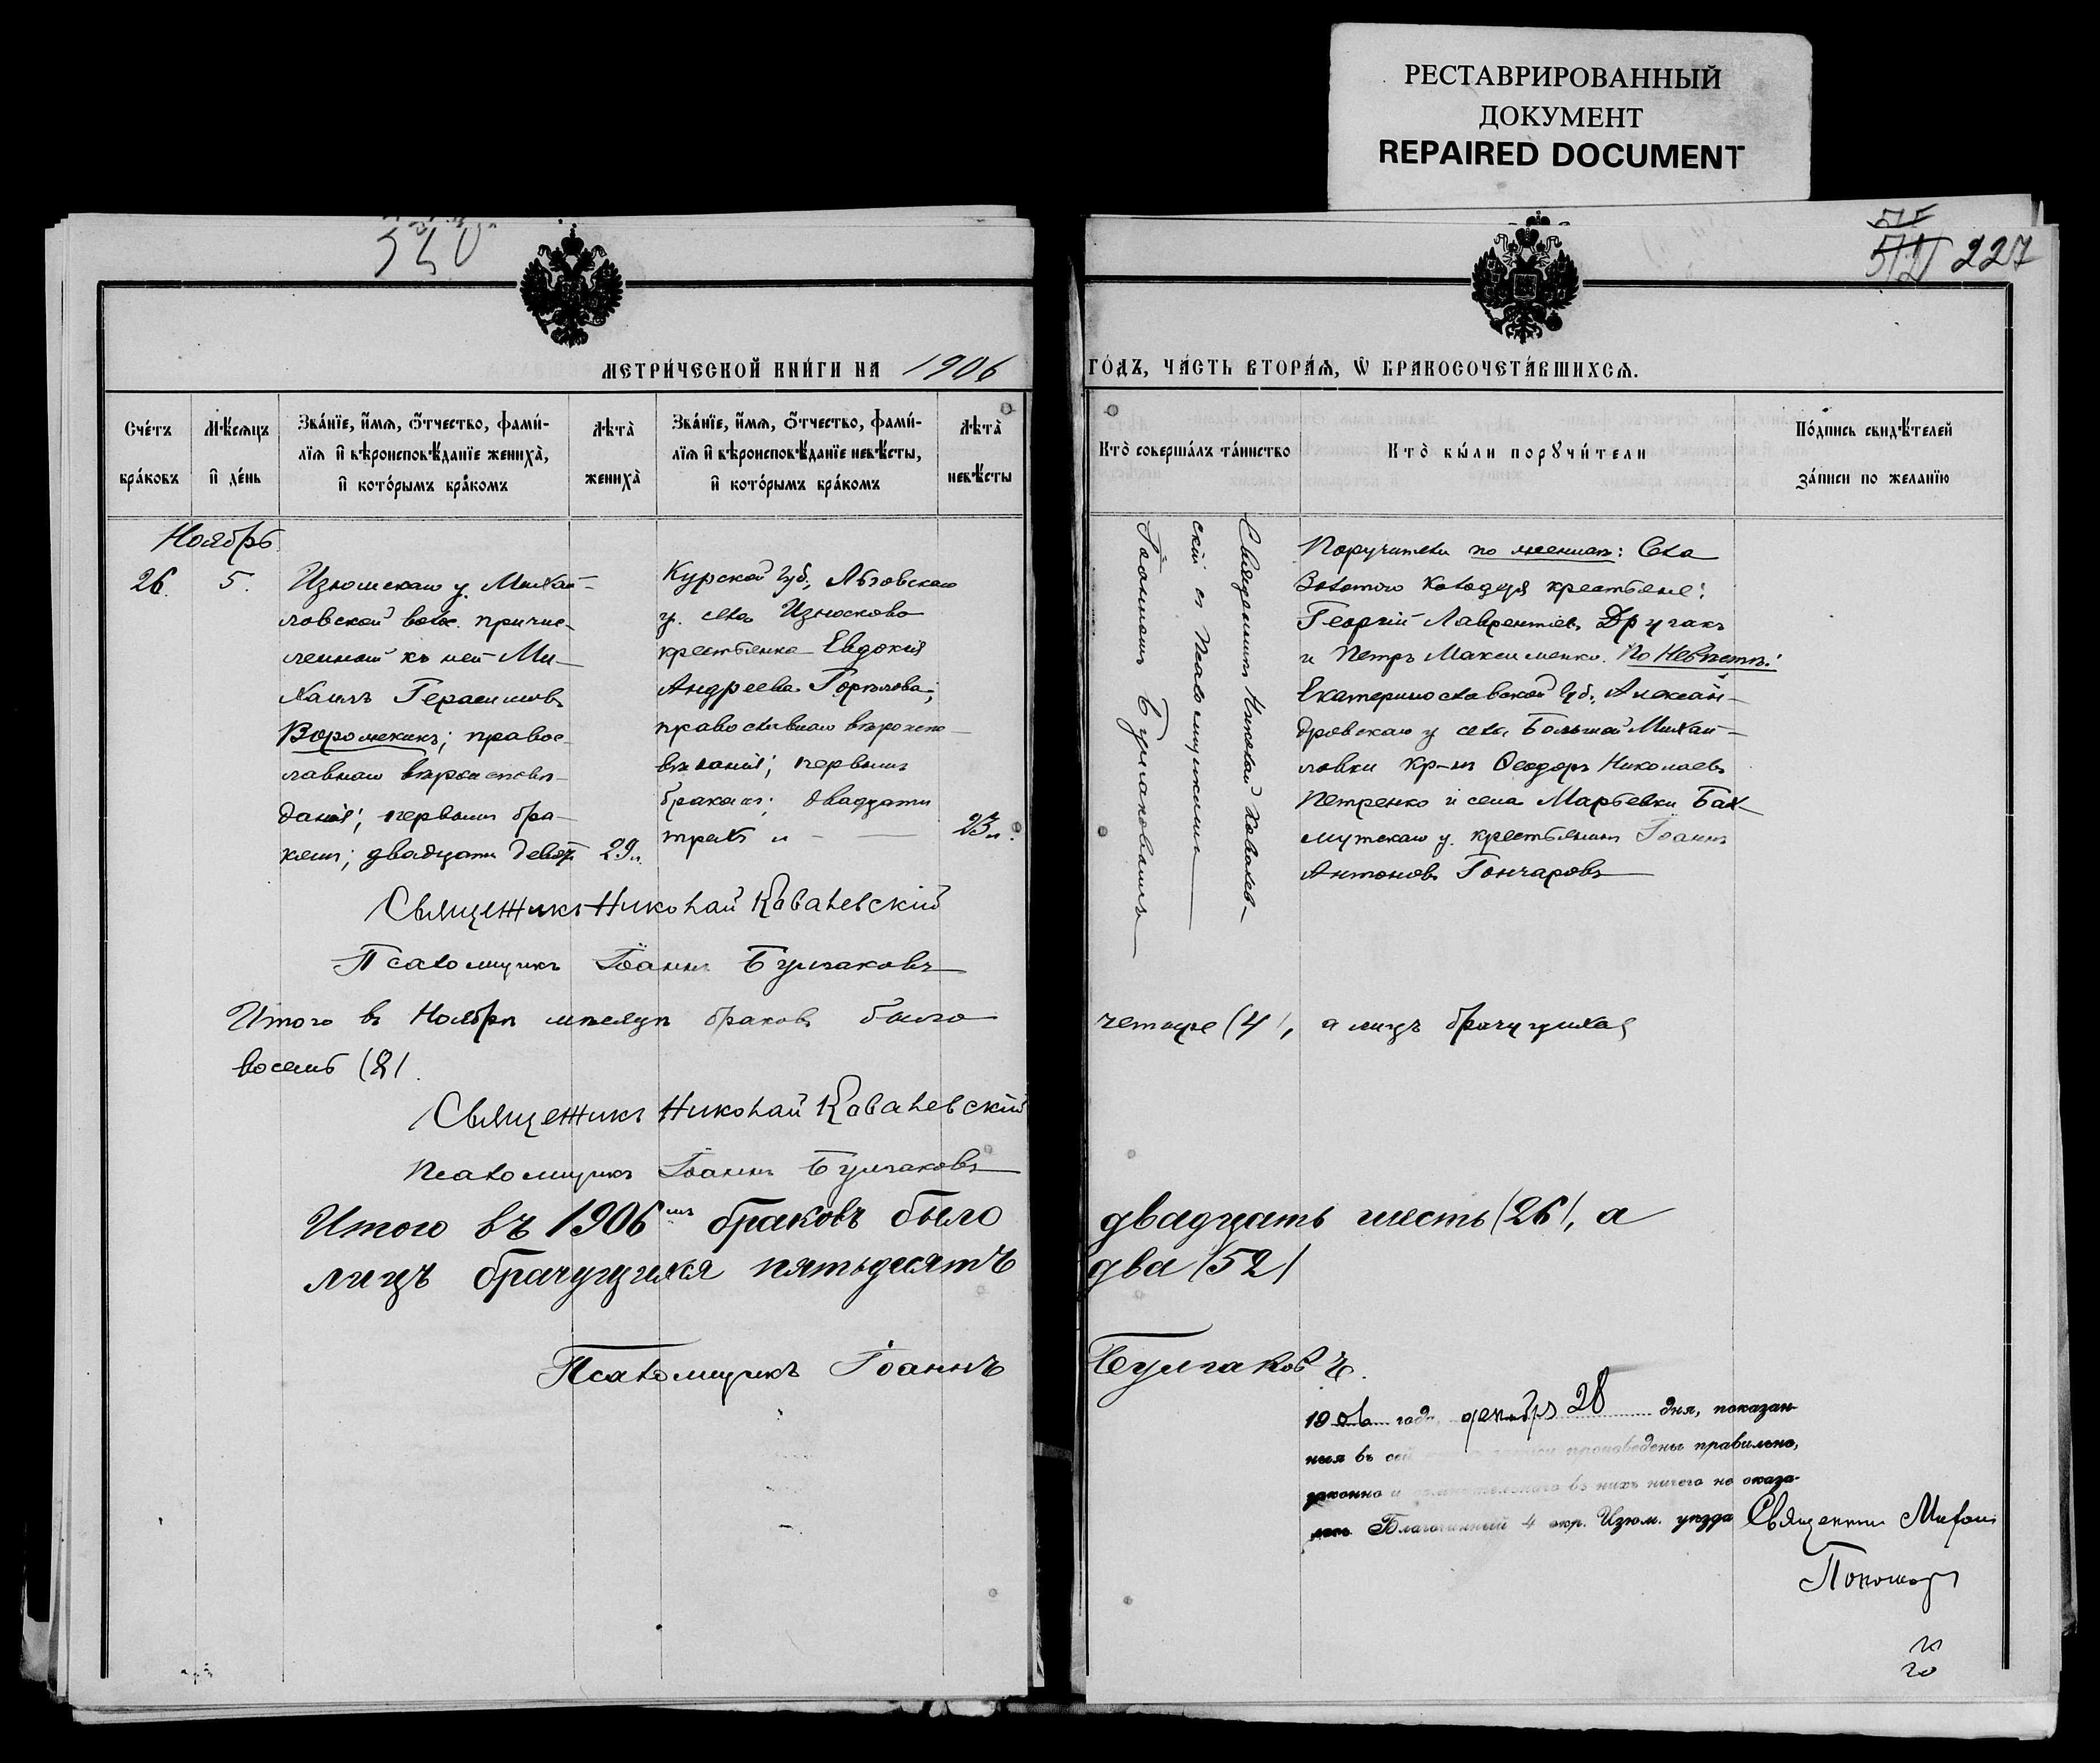 РЕСТАВРИРОВАННЫЙ
ДОКУМЕНТ
REPAIRED DOCUMENT
340
515
512 227
МЕТРИ́ЧЕСКОЙ КНИ́ГИ НА 1906
ГО́ДЪ, ЧА́СТЬ ВТОРА́Ѧ, Ѡ БРАКОСОЧЕТА́ВШИХСѦ.
Сче́тъ
бра́ковъ
Мѣ́сѧцъ
и҆ де́нь
Зва́нїе, и҆́мѧ, ѻ҆́тчество, фами́-
лїѧ и҆ вѣроисповѣ́данїе женихà,
и҆ кото́рымъ бра́комъ
Лѣтà
женихà
Зва́нїе, и҆́мѧ, ѻ҆́тчество, фами́-
лїѧ и҆ вѣроисповѣ́данїе невѣ́сты,
и҆ кото́рымъ бра́комъ
Лѣтà
невѣ́сты
Кто̀ соверша́лъ та́инство
Кто̀ бы́ли порꙋчи́тели
По́дпись свидѣ́телей
за́писи по желанїю
Ноябрь
26. 5.
Изюмскаго у. Михай-
ловской волос. причис-
ленный къ ней Ми-
хаилъ Герасимовъ
Воромекинъ; правос-
лавнаго вѣроисповѣ-
данія; первымъ бра-
комъ; двадцати девят. 29 л.
Курской губ., Льговскаго
у. села Износкова
крестьянка Евдокія
Андреева Горѣлова;
православнаго вѣроиспо-
вѣданія; первымъ
бракомъ; двадцати
трехъ л 23 л.
Священникъ Николай Ковалев-
скій съ Псаломщикомъ
Іоанномъ Булгаковымъ
Поручители по женихѣ: Села
Золотого Колодезя крестьяне:
Георгій Лаврентіевъ Другакъ
и Петръ Максименко. По Невѣстѣ:
Екатеринославской губ., Алексан-
дровскаго у села Большой Михай-
ловки кр-нъ Ѳеодоръ Николаевъ
Петренко и села Марьевки Бах-
мутскаго у. крестьянинъ Іоаннъ
Антоновъ Гончаровъ
Священникъ Николай Ковалевскій
Псаломщикъ Іоаннъ Булгаковъ
Итого въ Ноябрѣ мѣсяцѣ браковъ было
четыре (4), а лицъ брачущихся
восемь (8).
Священникъ Николай Ковалевскій
Псаломщикъ Іоаннъ Булгаковъ
Итого въ 1906 мъ браковъ было
двадцать шесть (26), а
лицъ брачущихся пятьдесятъ
два (52)
Псаломщикъ Іоаннъ
Булгаковъ.
1906 года, декабря 28 дня, показан-
ныя въ сей произведены правильно,
законно и сомнительнаго въ нихъ ничего не оказа-
лось Благочинный 4 окр. Изюм. уѣзда Священникъ
20